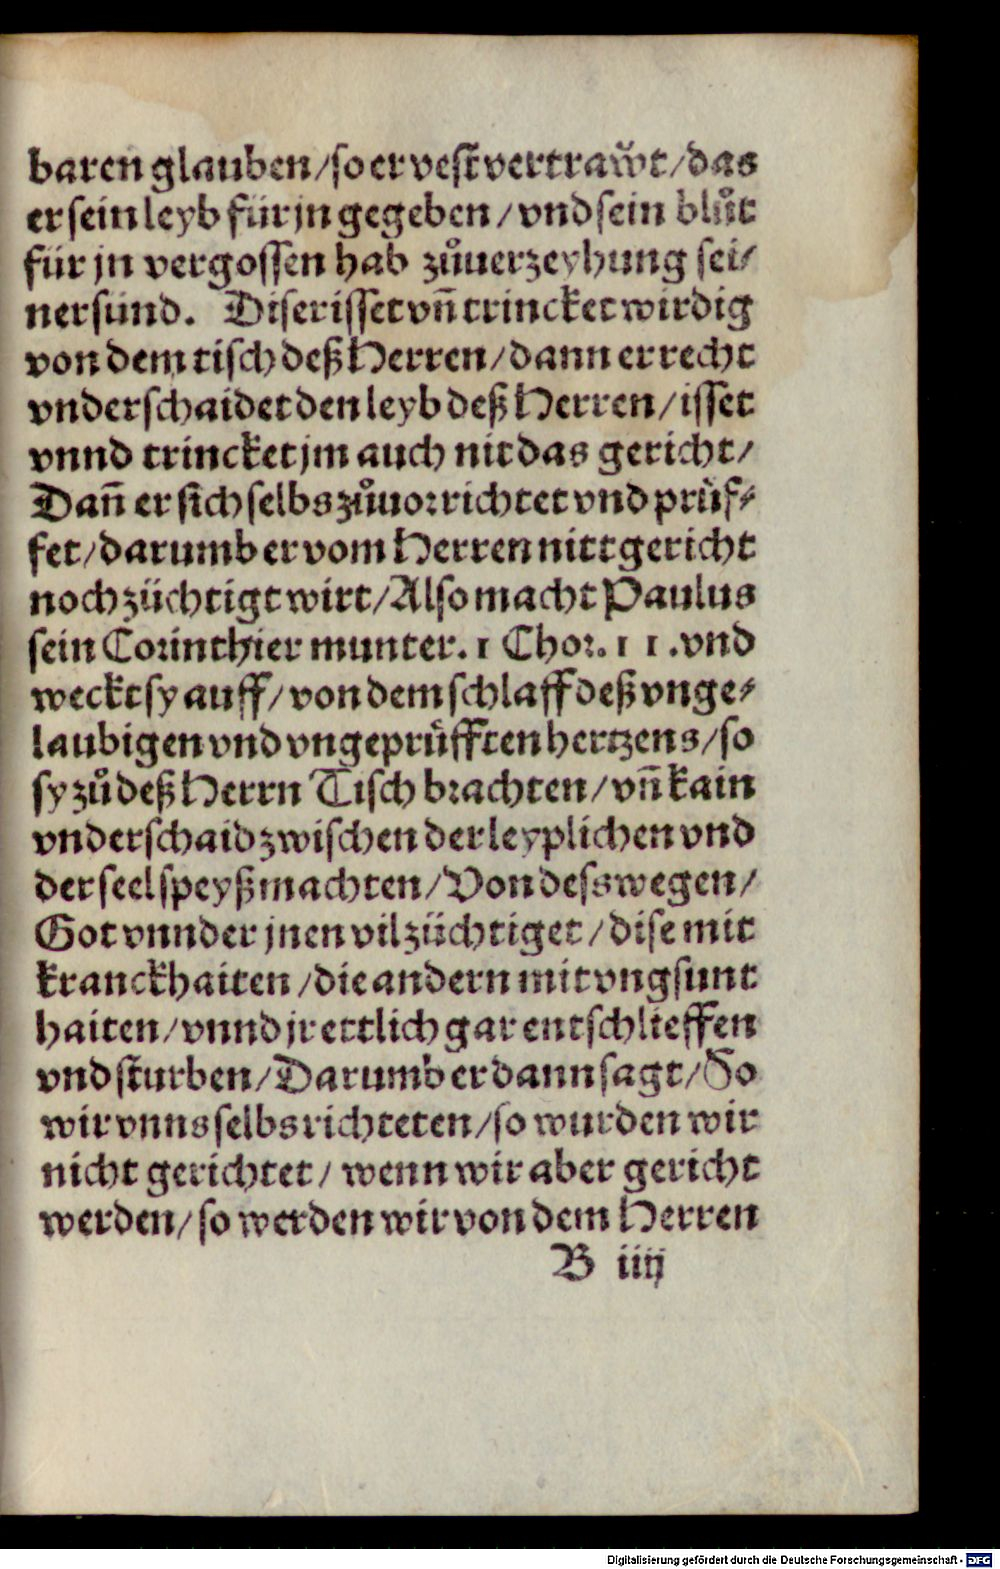 baren glauben / so er vest vertrawͦt / das
er sein leyb für jn gegeben / vnd sein blůt
für jn vergossen hab zůuerzeyhung sei⸗
ner sünd. Diser isset vñ trincket wirdig
von dem tisch deß Herren / dann er recht
vnderschaidet den leyb deß Herren / isset
vnnd trincket jm auch nit das gericht /
Dañ er sich selbs zůuor richtet vnd prüf⸗
fet / darumb er vom Herren nitt gericht
noch züchtigt wirt / Also macht Paulus
sein Corinthier munter. 1 Chor. 1 1 . vnd
weckt sy auff / von dem schlaff deß vnge⸗
laubigen vnd vngeprüfften hertzens / so
sy zů deß Herrn Tisch brachten / vñ kain
vnderschaid zwischen der leyplichen vnd
der seel speyß machten / Von desswegen /
Got vnnder jnen vil züchtiget / dise mit
kranckhaiten / die andern mit vngsunt
haiten / vnnd jr ettlich gar entschlieffen
vnd sturben / Darumb er dann sagt / So
wir vnns selbs richteten / so wurden wir
nicht gerichtet / wenn wir aber gericht
werden / so werden wir von dem Herren
B iiij
Digitalisierung gefördert durch die Deutsche Forschungsgemeinschaft - DFG